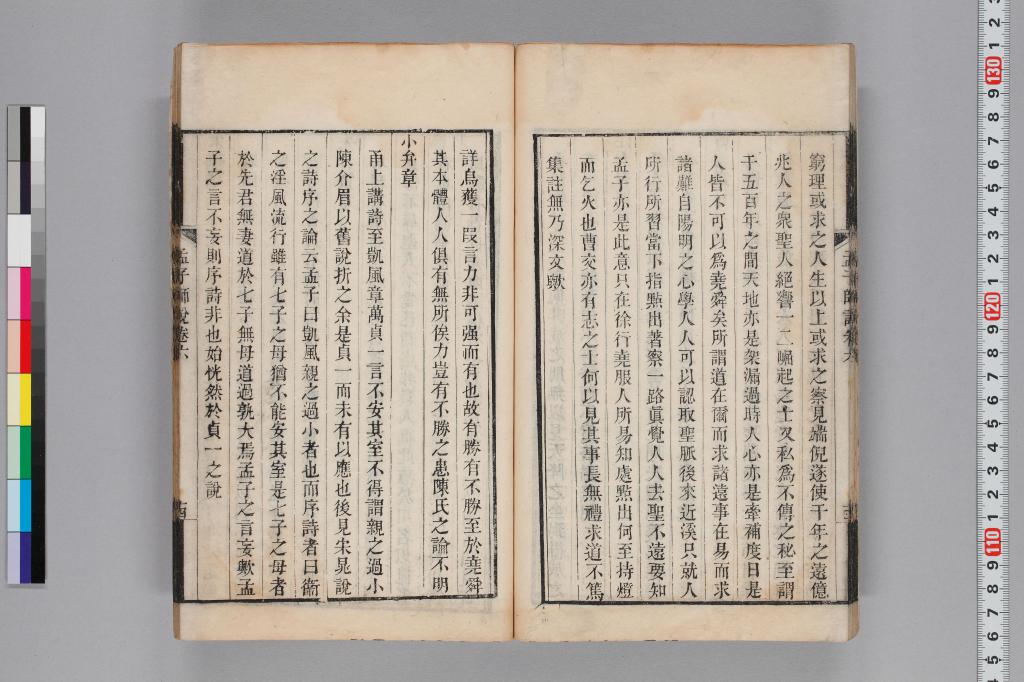 窮理或求之人生以上或求之察見端倪遂使千年之遠億
兆人之衆聖人絕響一二崛起之士又私爲不傳之秘至謂
千五百年之間天地亦是架漏過時人心亦是牽補度日是
人皆不可以爲堯舜矣所謂道在爾而求諸遠事在易而求
諸難自陽明之心學人人可以認取聖脈後來近溪只就人
所行所習當下指點出著察一路眞覺人人去聖不遠要知
孟子亦是此意只在徐行堯服人所易知處點出何至持燈
而乞火也曹交亦有志之士何以見其事長無禮求道不篤
集註無乃深文歟
孟子師說卷六
詳烏獲一段言力非可强而有也故有勝有不勝至於堯舜
其本體人人俱有無所俟力豈有不勝之患陳氏之論不明
小弁章
甬上講詩至凱風章萬貞一言不安其室不得謂親之過小
陳介眉以舊說折之余是貞一而未有以應也後見宋晁說
之詩序之論云孟子曰凱風親之過小者也而序詩者曰衞
之淫風流行雖有七子之母猶不能安其室是七子之母者
於先君無妻道於七子無母道過孰大焉孟子之言妄歟孟
子之言不妄則序詩非也始恍然於貞一之說
孟子師說卷六
十四